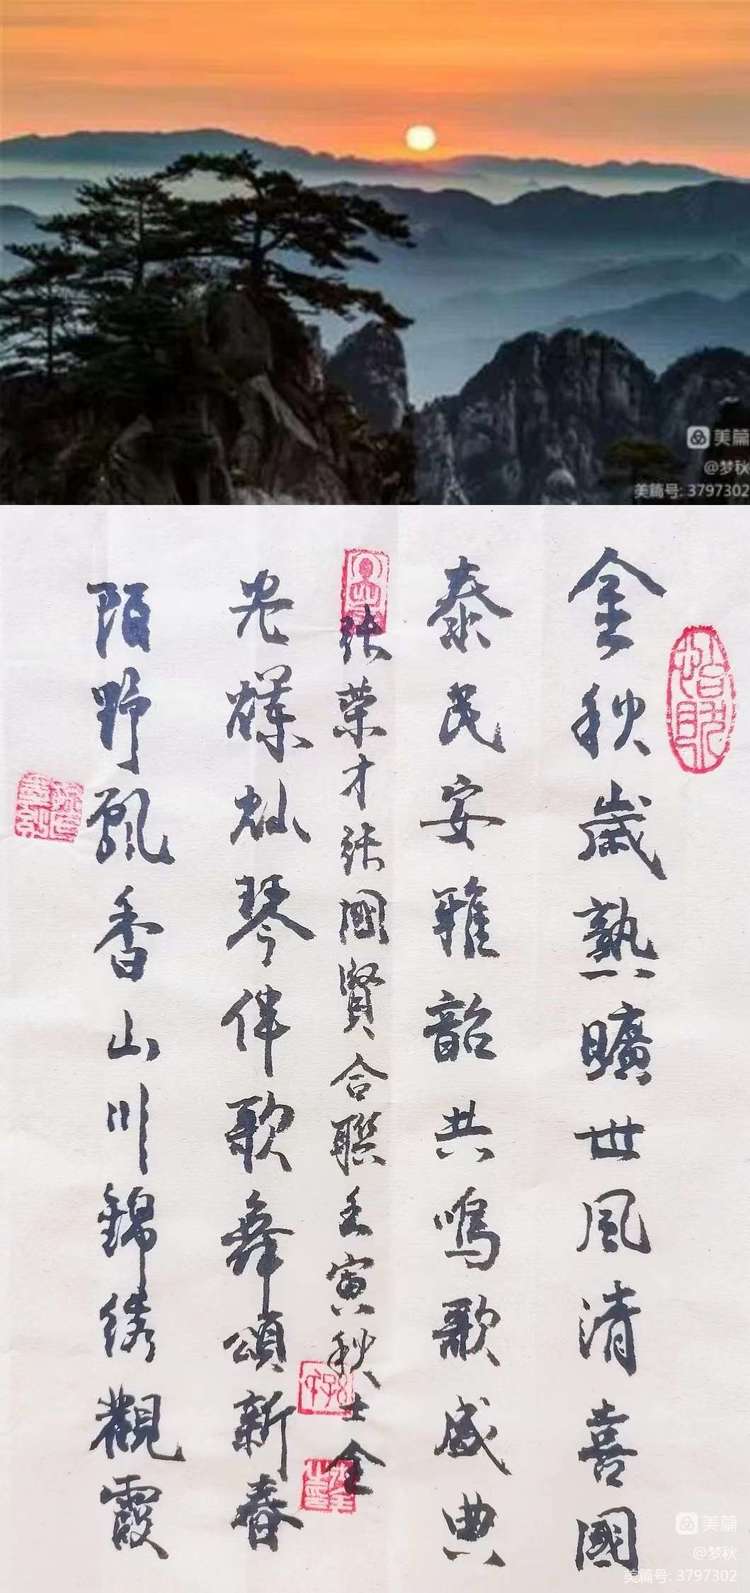 美篇
@梦秋
美篇号: 3797302
金秋歲熟曠世風清喜國
泰民安雅韶共鳴歌盛典
陌野飄香山川錦綉觀霞
光灿琴伴歌舞頌新春
张榮才张國賢合聯壬寅秋士全
美篇
@梦秋
美篇号: 3797302